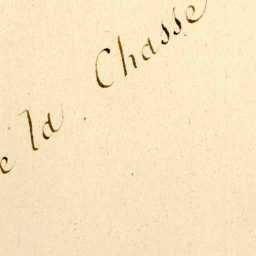 e la Chasse